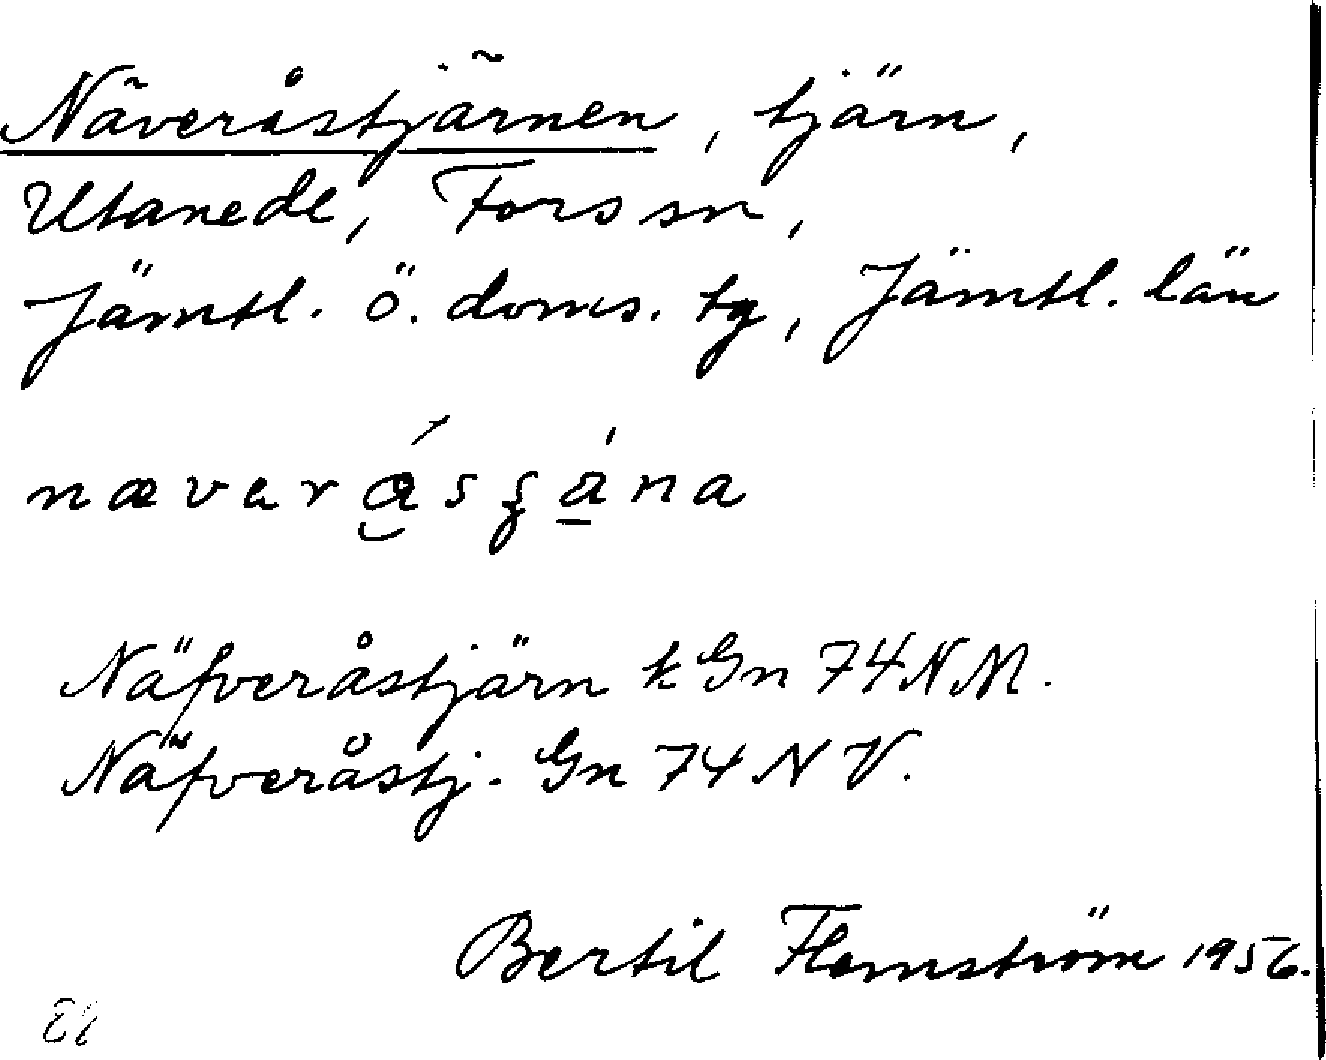 Näveråstjärnen, tjärn,
Utanede, Fors sn,
Jämtl. ö. doms. tg, Jämtl. län
Näfveråstjärn k Gn 74 NM.
Näfveråstj. Gn 74 N V.
Bertil Flemström 1956.